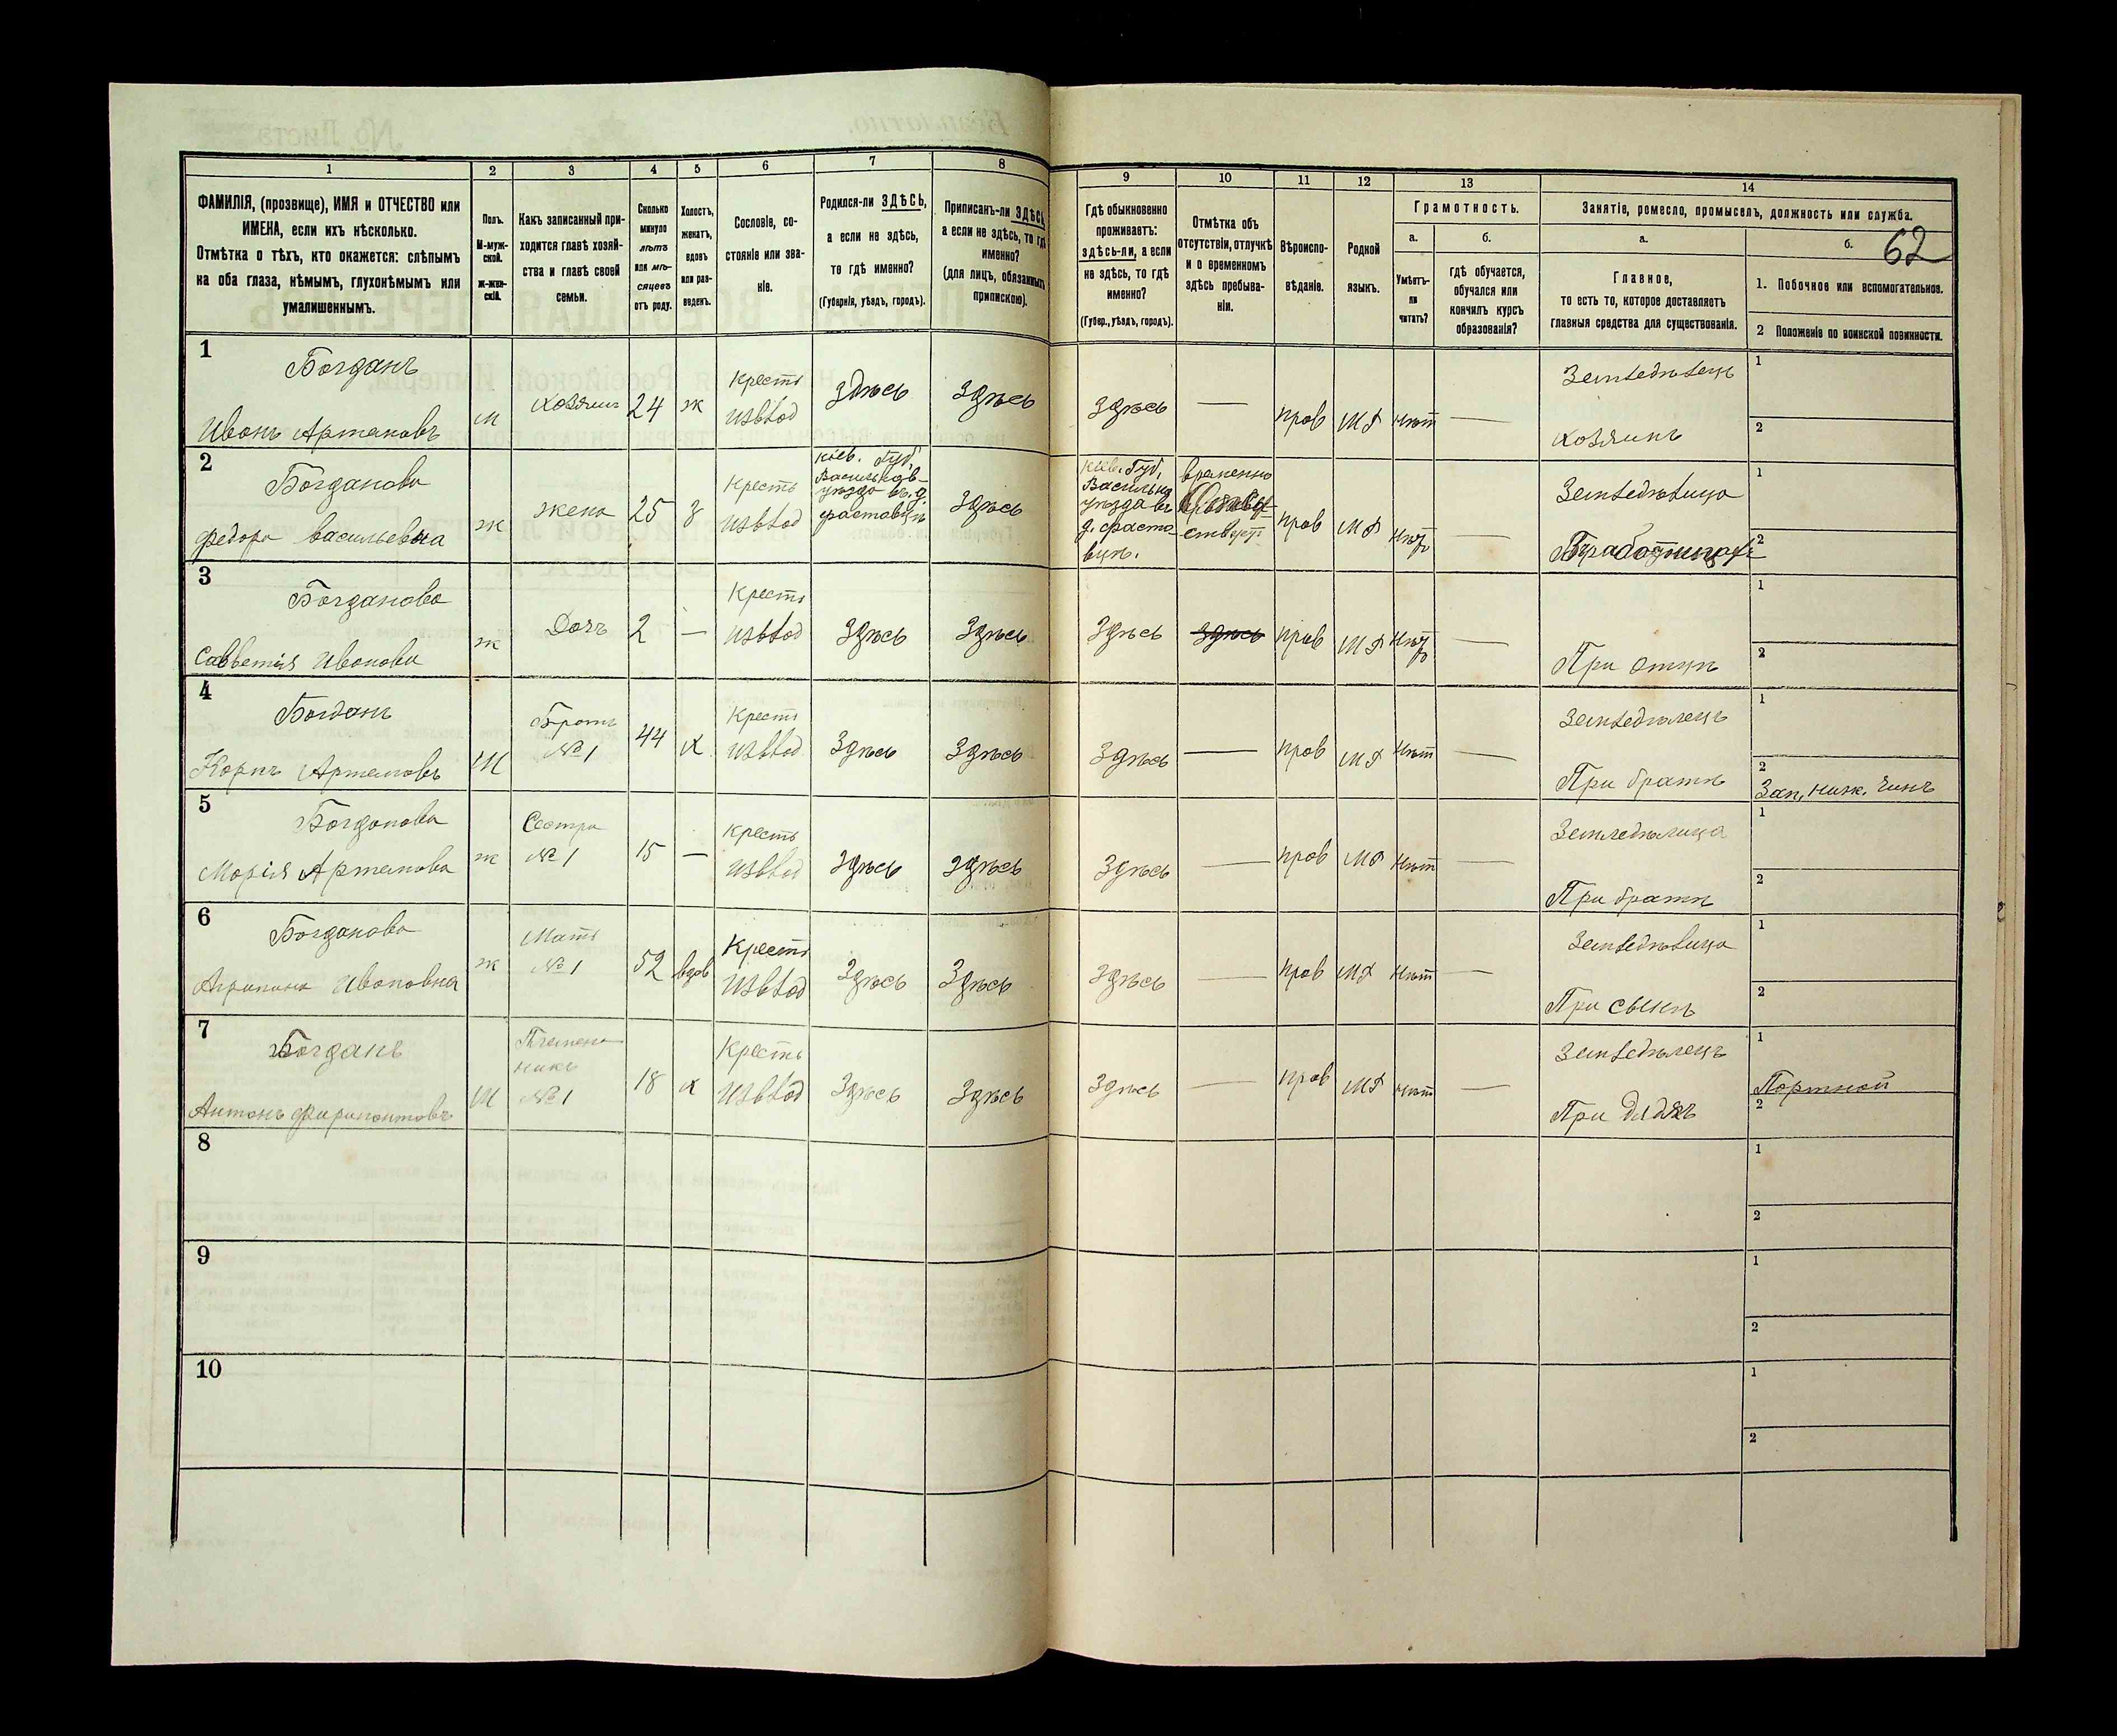 62
1
2
3
4
5
6
7
8
ФАМИЛІЯ, (прозвище), ИМЯ и ОТЧЕСТВО или
ИМЕНА, если ихъ нѣсколько.
Отмѣтка о тѣхъ, кто окажется: слѣпымъ
на оба глаза, нѣмымъ, глухонѣмымъ или
умалишеннымъ.
Полъ.
М-муж-
ской.
ж-жен-
скій.
Какъ записанный при-
ходится главѣ хозяй-
ства и главѣ своей
семьи.
Сколько
минуло
лѣтъ
или мѣ-
сяцевъ
отъ роду.
Холостъ,
женатъ,
вдовъ
или раз-
веденъ.
Сословіе, со-
стояніе или зва-
ніе.
Родился-ли ЗДѢСЬ,
а если не здѣсь,
то гдѣ именно?
(Губернія, уѣздъ, городъ).
Приписанъ-ли ЗДѢСЬ,
а если не здѣсь, то гдѣ
именно?
(для лицъ, обязанныхъ
припискою).
9
10
11
12
13
14
Гдѣ обыкновенно
проживаетъ:
здѣсь-ли, а если
не здѣсь, то гдѣ
именно?
(Губер., уѣздъ, городъ).
Отмѣтка объ
отсутствіи, отлучкѣ
и о временномъ
здѣсь пребыва-
ніи.
Вѣроиспо-
вѣданіе.
Родной
языкъ.
Грамотность.
а.
Умѣетъ-
ли
читать?
б.
гдѣ обучается,
обучался или
кончилъ курсъ
образованія?
Занятіе, ремесло, промыселъ, должность или служба.
а.
Главное,
то есть то, которое доставляетъ
главныя средства для существованія.
б.
1. Побочное или вспомогательное.
2 Положеніе по воинской повинности.
1
Богданъ
Иванъ Артемовъ
м
хозяинъ
24
ж
Крестъ
изъ влад
здѣсь
здѣсь
здѣсь
—
прав
МР
нѣт
—
Земледѣлецъ
хозяинъ
1
2
2
Богданова
Федора Васильевна
ж
жена
25
з
Крестъ
изъ влад
Кіев. Губ,
Васильков-
уѣзда въ д.
Фастовцѣ
здѣсь
Кіев. Губ,
Василько
уѣзда въ
д. Фасто-
вцѣ.
временно
прав
МР
—
Земледѣлица
1
2
3
Богданова
Савветія Иванова
ж
Дочь
2
—
Крестъ
изъ влад
Здѣсь
Здѣсь
Здѣсь
здѣсь
прав
МР
—
При отцѣ
1
2
4
Богданъ
Карпъ Артемовъ
М
Братъ
№ 1
44
х
Крестъ
изъ влад
Здѣсь
Здѣсь
Здѣсь
—
прав
МР
нѣт
—
Земледѣлецъ
При братѣ
1
2
Зап. ниж. чинъ
5
Богданова
Марія Артемова
ж
Сестра
№ 1
15
—
Крестъ
изъ влад
здѣсь
здѣсь
Здѣсь
—
прав
МР
нѣт
—
Земледѣлица
При братѣ
1
2
6
Богданова
Агрипина Ивановна
ж
Мать
№ 1
52
вдов
Крестъ
изъ влад
Здѣсь
Здѣсь
Здѣсь
—
прав
МР
нѣт
—
Земледѣлица
При сынѣ
1
2
7
Богданъ
Антонъ Фирипонтовъ
М
Племен-
никъ
№ 1
18
х
Крестъ
изъ влад
Здѣсь
Здѣсь
Здѣсь
—
прав
МР
нѣт
—
Земледѣлецъ
При дядѣ
1
Портной
2
8
1
2
9
1
2
10
1
2